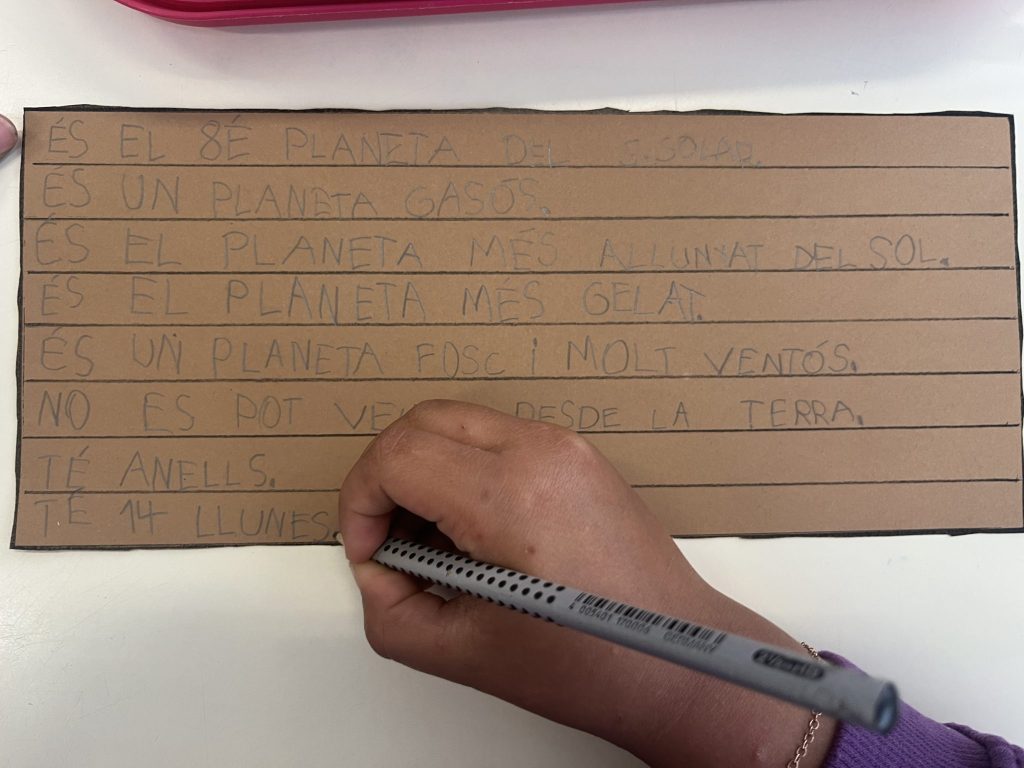 ÉS EL 8É PLANETA DEL S.SOLAR.
ÉS UN PLANETA GASÓS.
ÉS EL PLANETA MÉS ALLUNYAT DEL SOL.
ÉS EL PLANETA MÉS GELAT.
ÉS UN PLANETA FOSC i MOLT VENTÓS.
NO ES POT DESDE LA TERRA.
TÉ ANELLS.
TÉ 14 LLUNES.
4 005401 170006 GERMANY